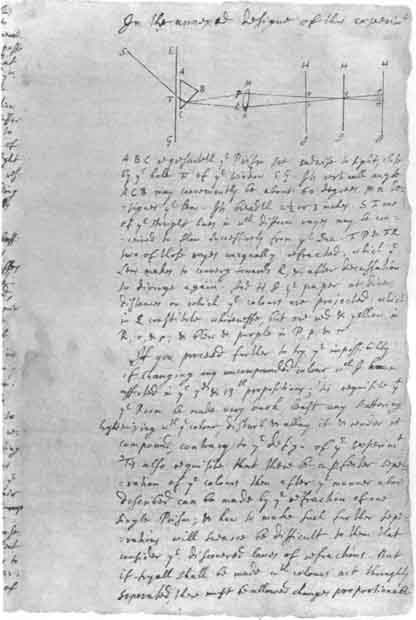 In the annexed designe of this experim
S E
A M H H H
B
T P
C R N
G I I I
A B C representeth yᵉ Prism set endwise to sight, close
by yᵉ hole F of yᵉ window E G. Its vertical angle
A C B may conveniently be about 60 degrees. M N de-
-signes yᵉ Lens. Its breadth 2½ or 3 inches. S F one
of yᵉ streight lines in wᶜʰ difform rays may be con-
-ceived to flow successively from yᵉ Sun. F P & F R
two of those rays unequally refracted, which yᵉ
Lens makes to converge towards Q, & after decussation
to diverge again. And H I yᵉ paper at divers
distances on which yᵉ colours are projected, which
in Q constitute whiteness, but are red & yellow in
R, r, & ρ, & blew & purple in P, p, & π
If you proceed further to try yᵉ impossibility
of changing any uncompounded colour wᶜʰ I have
asserted in yᵉ 3ᵈ & 13ᵗʰ propositions, 'tis requisite yᵗ
yᵉ Room be made very dark, least any scattering
light mixing wᵗʰ yᵉ colour disturb & allay it & render it
compound, contrary to yᵉ designe of yᵉ experimᵗ
'Tis also requisite that there be a perfecter sepa-
-ration of yᵉ colours then after yᵉ manner above
described can be made by yᵉ refraction of one
single Prism, & how to make such further sepa-
-rations will scarce be difficult to them that
consider yᵉ discovered laws of refractions. But
if tryall shall be made wᵗʰ colours not throughly
separated there must be allowed changes proportionable